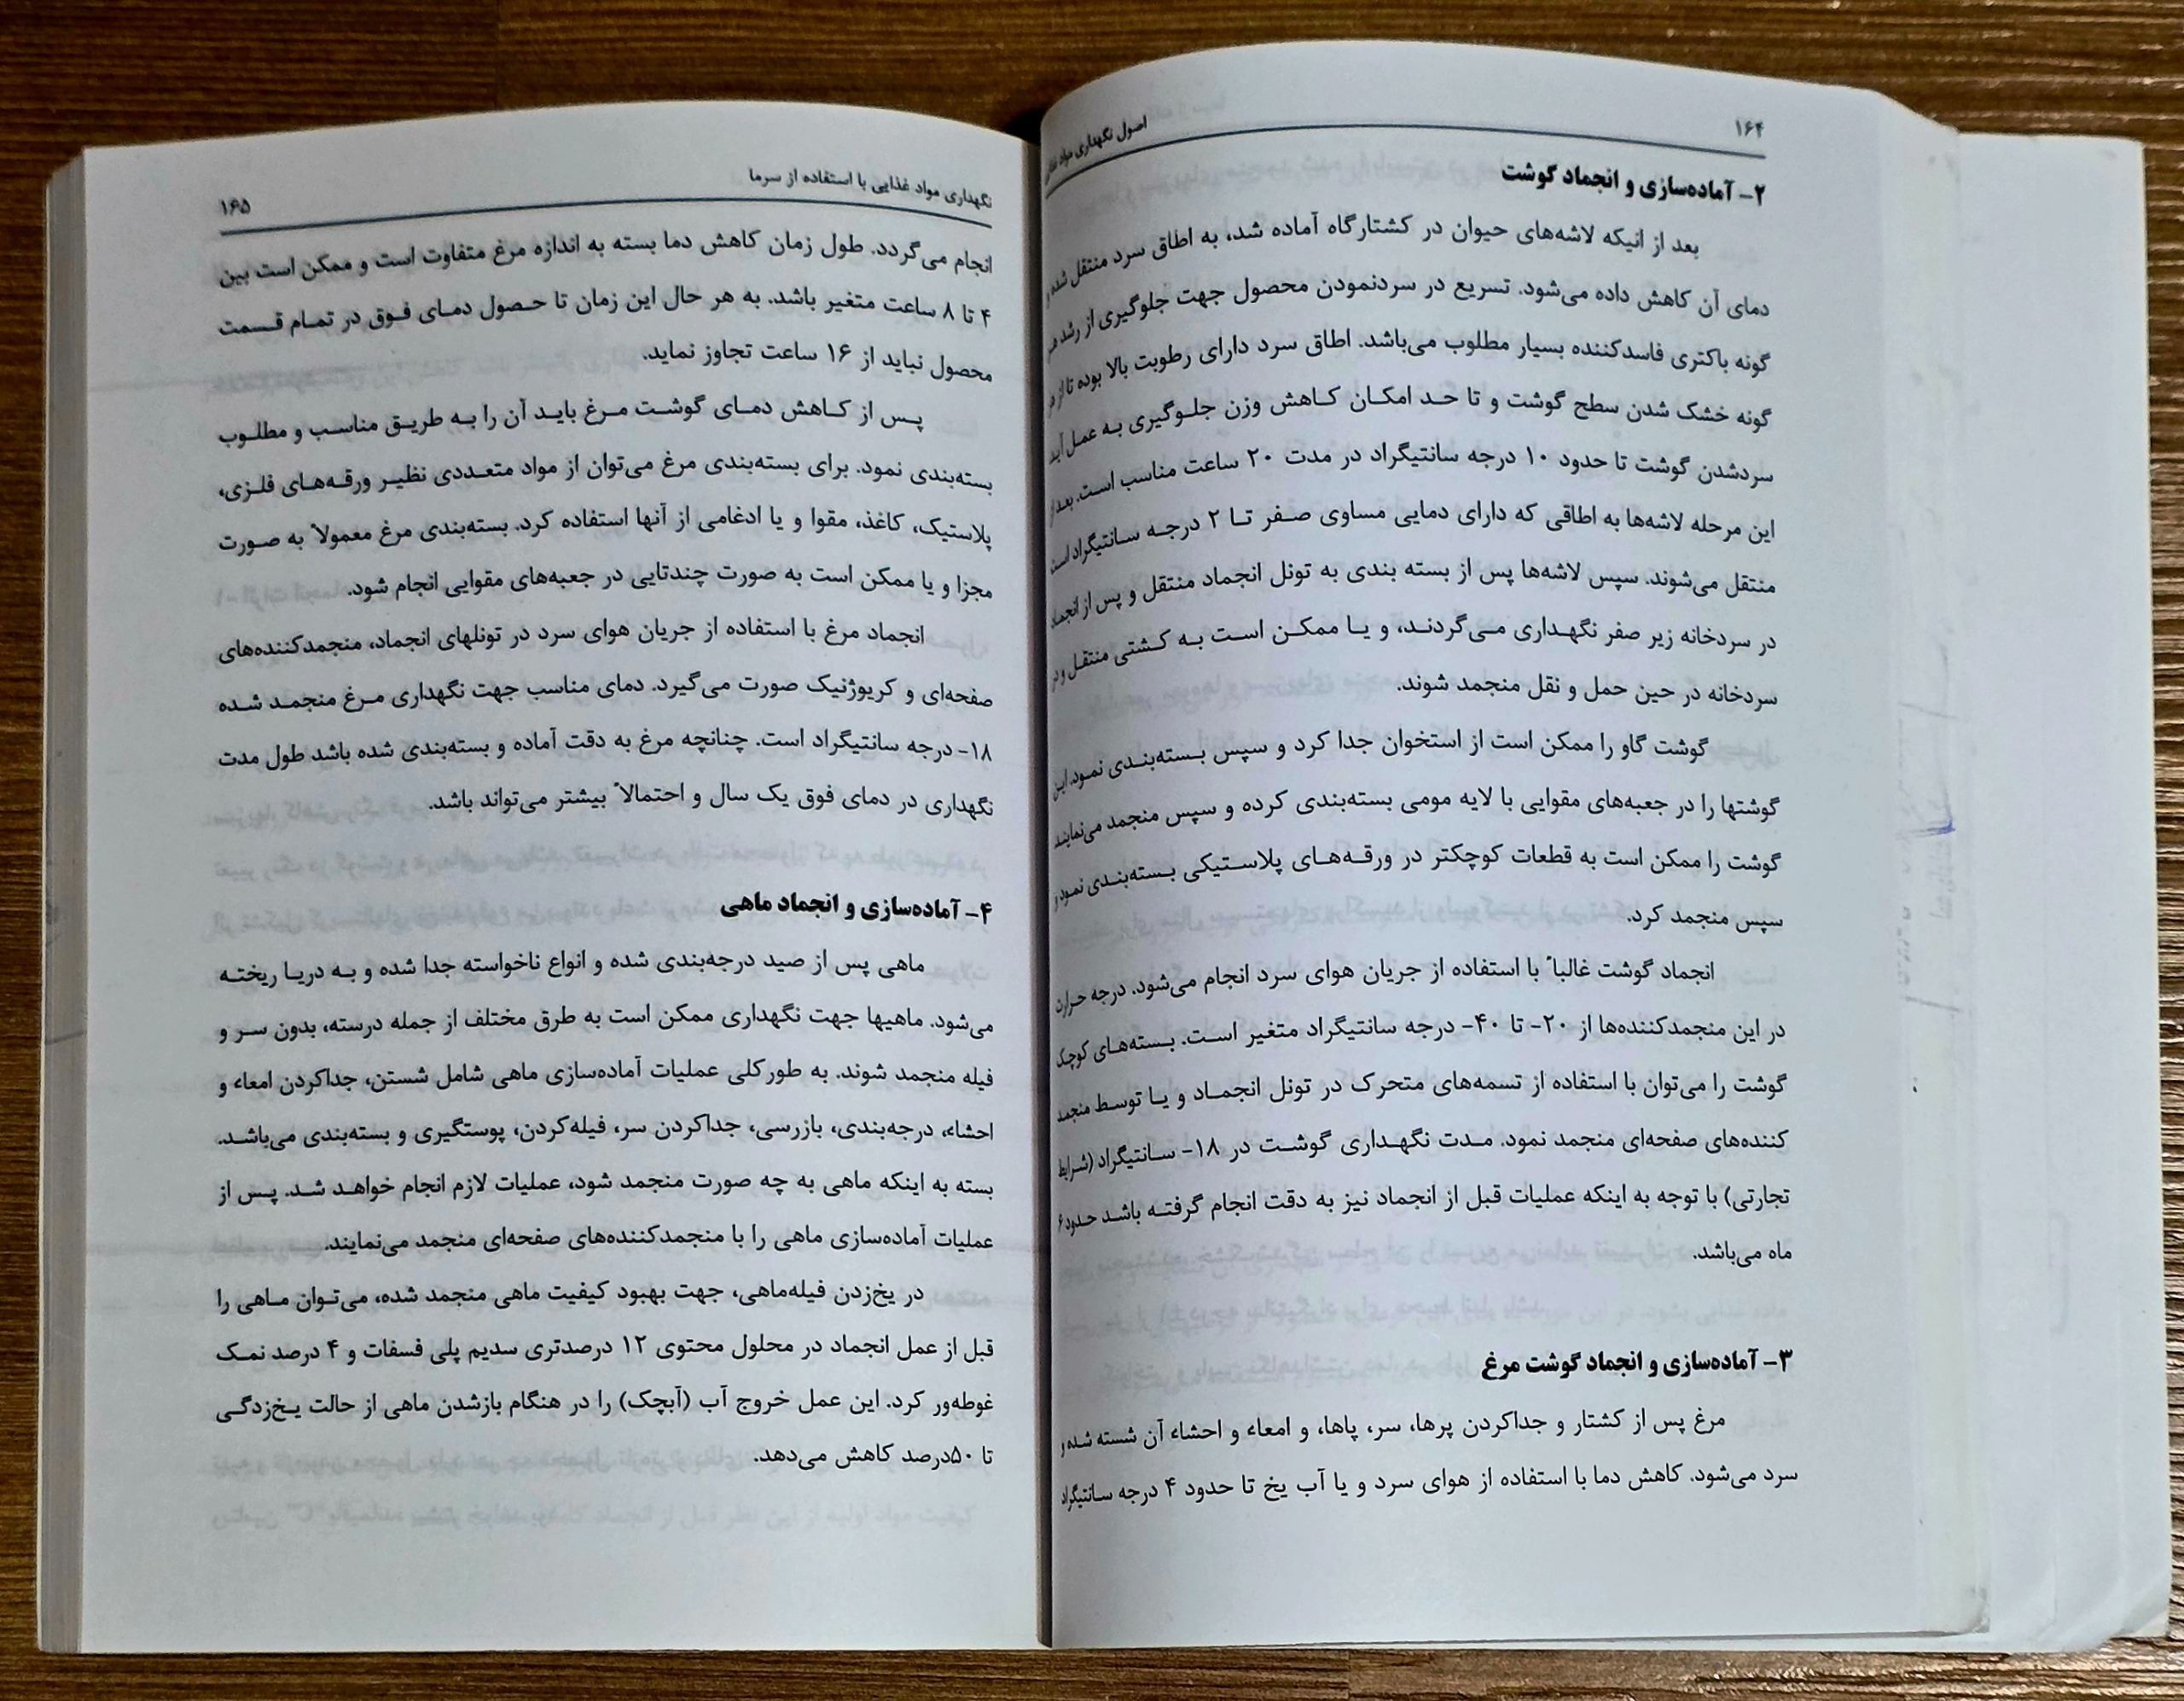 ۱۶۴
اصول نگهداری مواد
۲- آماده‌سازی و انجماد گوشت
بعد از انیکه لاشه‌های حیوان در کشتارگاه آماده شد، به اطاق سرد منتقل شده و
دمای آن کاهش داده می‌شود. تسریع در سردنمودن محصول جهت جلوگیری از رشد هر
گونه باکتری فاسدکننده بسیار مطلوب می‌باشد. اطاق سرد دارای رطوبت بالا بوده تا از هر
گونه خشک شدن سطح گوشت و تا حد امکان کاهش وزن جلوگیری به عمل آید.
سردشدن گوشت تا حدود ۱۰ درجه سانتیگراد در مدت ۲۰ ساعت مناسب است. بعد از
این مرحله لاشه‌ها به اطاقی که دارای دمایی مساوی صفر تا ۲ درجه سانتیگراد است
منتقل می‌شوند. سپس لاشه‌ها پس از بسته بندی به تونل انجماد منتقل و پس از انجماد
در سردخانه زیر صفر نگهداری می‌گردند، و یا ممکن است به کشتی منتقل و در
سردخانه در حین حمل و نقل منجمد شوند.
گوشت گاو را ممکن است از استخوان جدا کرد و سپس بسته‌بندی نمود. این
گوشتها را در جعبه‌های مقوایی با لایه مومی بسته‌بندی کرده و سپس منجمد می‌نمایند
گوشت را ممکن است به قطعات کوچکتر در ورقه‌های پلاستیکی بسته‌بندی نمود و
سپس منجمد کرد.
انجماد گوشت غالباً با استفاده از جریان هوای سرد انجام می‌شود. درجه حرارت
در این منجمدکننده‌ها از ۲۰- تا ۴۰- درجه سانتیگراد متغیر است. بسته‌های کوچک
گوشت را می‌توان با استفاده از تسمه‌های متحرک در تونل انجماد و یا توسط منجمد
کننده‌های صفحه‌ای منجمد نمود. مدت نگهداری گوشت در ۱۸- سانتیگراد (شرایط
تجارتی) با توجه به اینکه عملیات قبل از انجماد نیز به دقت انجام گرفته باشد حدود ۶
ماه می‌باشد.
۳- آماده‌سازی و انجماد گوشت مرغ
مرغ پس از کشتار و جداکردن پرها، سر، پاها، و امعاء و احشاء آن شسته شده و
سرد می‌شود. کاهش دما با استفاده از هوای سرد و یا آب یخ تا حدود ۴ درجه سانتیگراد
نگهداری مواد غذایی با استفاده از سرما
۱۶۵
انجام می‌گردد. طول زمان کاهش دما بسته به اندازه مرغ متفاوت است و ممکن است بین
۴ تا ۸ ساعت متغیر باشد. به هر حال این زمان تا حصول دمای فوق در تمام قسمت
محصول نباید از ۱۶ ساعت تجاوز نماید.
پس از کاهش دمای گوشت مرغ باید آن را به طریق مناسب و مطلوب
بسته‌بندی نمود. برای بسته‌بندی مرغ می‌توان از مواد متعددی نظیر ورقه‌های فلزی،
پلاستیک، کاغذ، مقوا و یا ادغامی از آنها استفاده کرد. بسته‌بندی مرغ معمولاً به صورت
مجزا و یا ممکن است به صورت چندتایی در جعبه‌های مقوایی انجام شود.
انجماد مرغ با استفاده از جریان هوای سرد در تونلهای انجماد، منجمدکننده‌های
صفحه‌ای و کریوژنیک صورت می‌گیرد. دمای مناسب جهت نگهداری مرغ منجمد شده
۱۸- درجه سانتیگراد است. چنانچه مرغ به دقت آماده و بسته‌بندی شده باشد طول مدت
نگهداری در دمای فوق یک سال و احتمالاً بیشتر می‌تواند باشد.
۴- آماده‌سازی و انجماد ماهی
ماهی پس از صید درجه‌بندی شده و انواع ناخواسته جدا شده و به دریا ریخته
می‌شود. ماهیها جهت نگهداری ممکن است به طرق مختلف از جمله درسته، بدون سر و
فیله منجمد شوند. به طورکلی عملیات آماده‌سازی ماهی شامل شستن، جداکردن امعاء و
احشاء، درجه‌بندی، بازرسی، جداکردن سر، فیله‌کردن، پوستگیری و بسته‌بندی می‌باشد.
بسته به اینکه ماهی به چه صورت منجمد شود، عملیات لازم انجام خواهد شد. پس از
عملیات آماده‌سازی ماهی را با منجمدکننده‌های صفحه‌ای منجمد می‌نمایند.
در یخ‌زدن فیله‌ماهی، جهت بهبود کیفیت ماهی منجمد شده، می‌توان ماهی را
قبل از عمل انجماد در محلول محتوی ۱۲ درصدتری سدیم پلی فسفات و ۴ درصد نمک
غوطه‌ور کرد. این عمل خروج آب (آبچک) را در هنگام بازشدن ماهی از حالت یخ‌زدگی
تا ۵۰درصد کاهش می‌دهد.